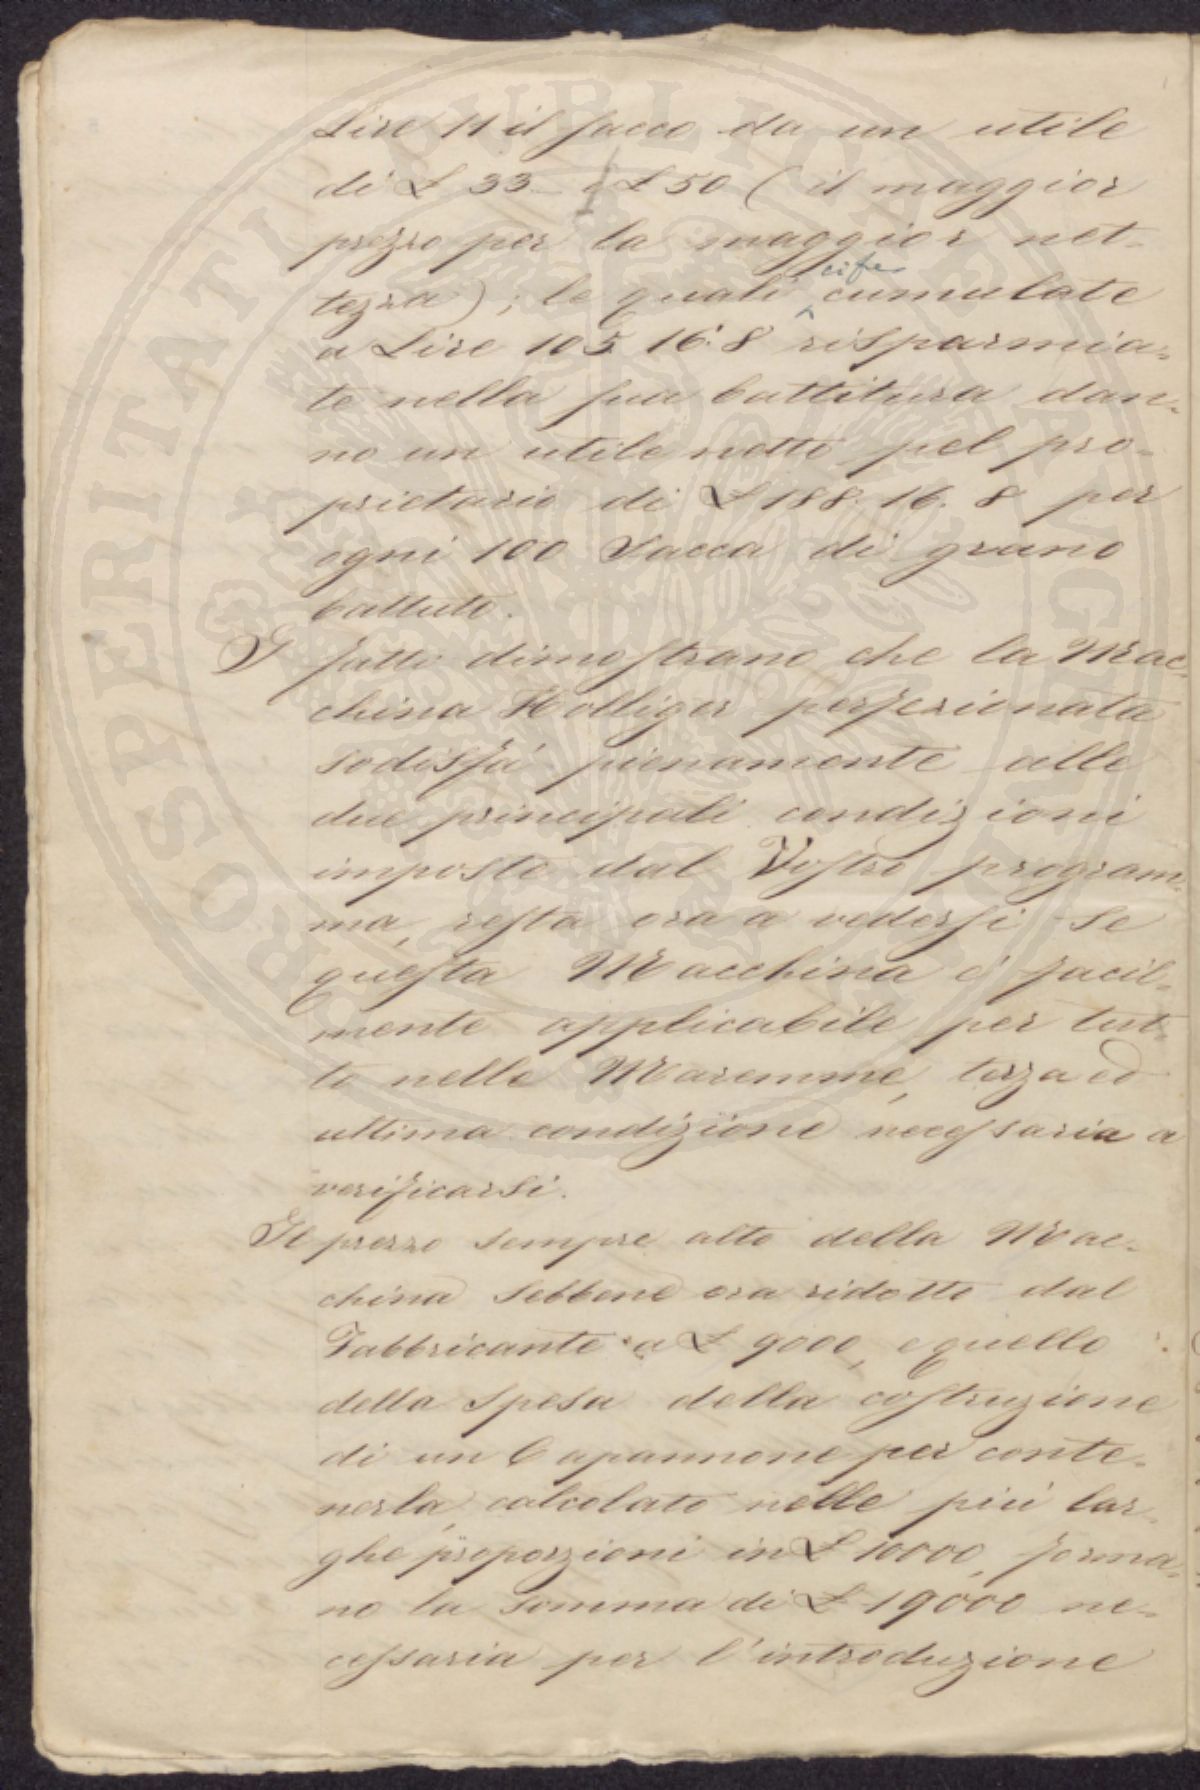 Lire 11 il sacco da un utile
di £ 33 - e £ 50 (il maggior
prezzo per la maggior net-
tezza); le quali cifre cumulate
a Lire 105. 16. 8 risparmia-
te nella sua battitura dan-
no un utile netto pel pro-
prietario di £ 188. 16. 8 per
ogni 100 Sacca di grano
battuto.
I fatti dimostrano che la Mac-
china Holliger perfezionata
sodisfá pienamente alle
due principali condizioni
imposte dal Vostro program-
ma, resta ora a vedersi se
questa Macchina é facil-
mente applicabile per tut-
to nelle Maremme, terza ed
ultima condizione necessaria a
verificarsi.
Il prezzo sempre alto della Mac-
china sebbene ora ridotto dal
Fabbricante a £ 9000, e quello
della spesa della costruzione
di un Capannone per conte-
nerla, calcolato nelle piú lar-
ghe proporzioni in £ 10000, forma-
no la somma di £ 19000 ne-
cessaria per l'introduzione
PROSPERITATI PUBLICAE AUGENDAE